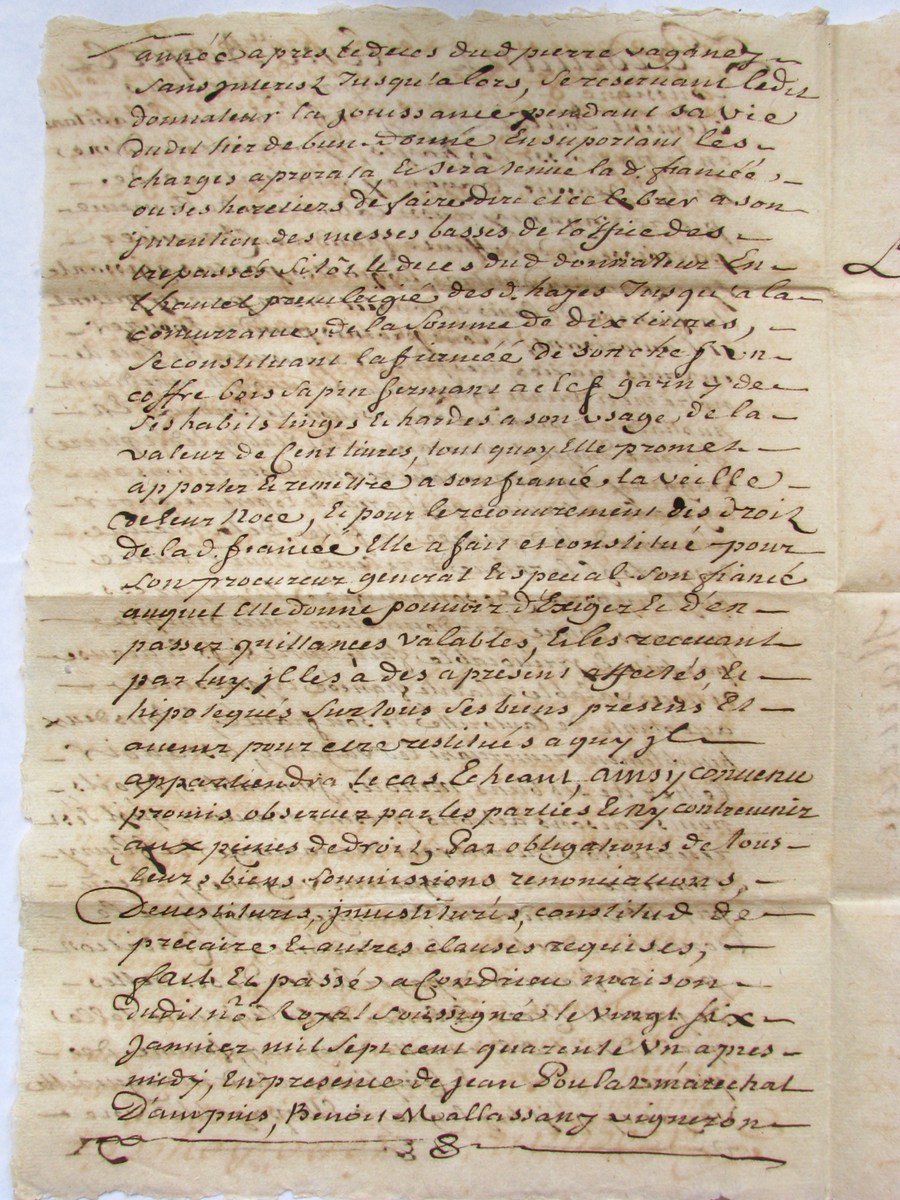 année apres le deces dud pierre vaganey
sans interest Jusqu'alors, se reservant ledit
donnateur la jouissance pendant sa vie
dudit tier de bien donné En suportant les
charges a prorata, Et sera tenue la d. fiancéé,
ou ses heretiers de faire dire et celebrer a son
jntention des messes basses de loffice des
trepassés sitôt le deces dud donnateur En
L'hautel previleigié des d. hayes Jusqu'a la
concurrance de la somme de dix livres,
Se constituant la fiancéé de son chef Un
coffre bois sapin fermant a clef garny de
ses habits linges Et hardes a son usage, de la
valeur de Cent livres, tout quoy Elle promet
apporter Et remettre a son fiancé la veille
de leur Noce, Et pour le recouvrement des droit
de la d. fiancéé Elle a fait et constitué pour
son procureur general Et special son fiancé
auquel Elle donne pouvoir d'Exiger Et d'en
passer quittances valables, Et les recevant
par luy jl les à des àprésent affectés, Et
hipotequés sur tous ses biens presens Et
avenir pour etre restitués a quy jl
appartiendra le cas Echeant, ainsy convenu
promis observer par les parties Et ny contrevenir
aux peines de droit, Par obligations de tous
leurs biens soumissions renonciations,
Devestitures, jnvestitures, constitud de
precaire Et autres clauses requises,
fait Et passé a Condrieu maison
dudit nre Royal soussigné le vingt six
Janvier mil sept cent quarente un apres
midy, En presence de jean Poulat maréchal
D'ampuis, Benoit Mallassany vigneron